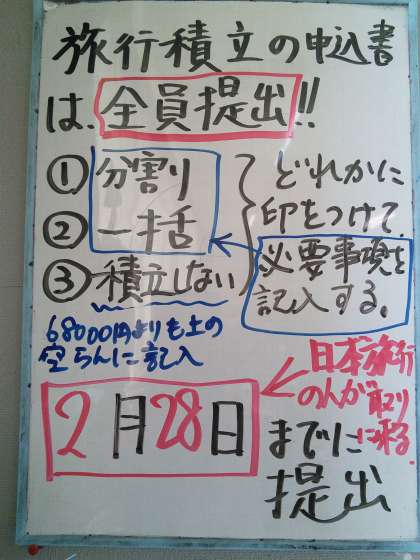 旅行積立の申込書
は、全員提出!!
① 分割り
② 一括
③ 積立しない
どれかに
印をつけて
必要事項を
記入する。
68000円よりも土の
空らんに記入
2月28日
までに
提出
日本旅行
のんが取り
に来る。